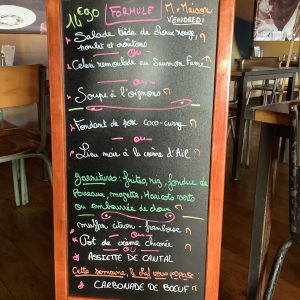 14€90 FORMULE M-Maison
VENDREDI
Salade tiède de chou rouge,
poulet et croûtons
ou
Céleri remoulade au Saumon Fumé
ou
Soupe à l'oignons
Fondant de porc coco-curry
ou
Lieu noir à la crème d'Ail
garnitures: frites, riz, fondue de
Poireaux, mogette, Haricots verts
ou embeurrée de choux
muffin citron - framboise
ou
Pot de crème chicorée
ou
ASSIETTE DE CANTAL
Cette semaine, le chef vous propose:
CARBONADE DE BŒUF